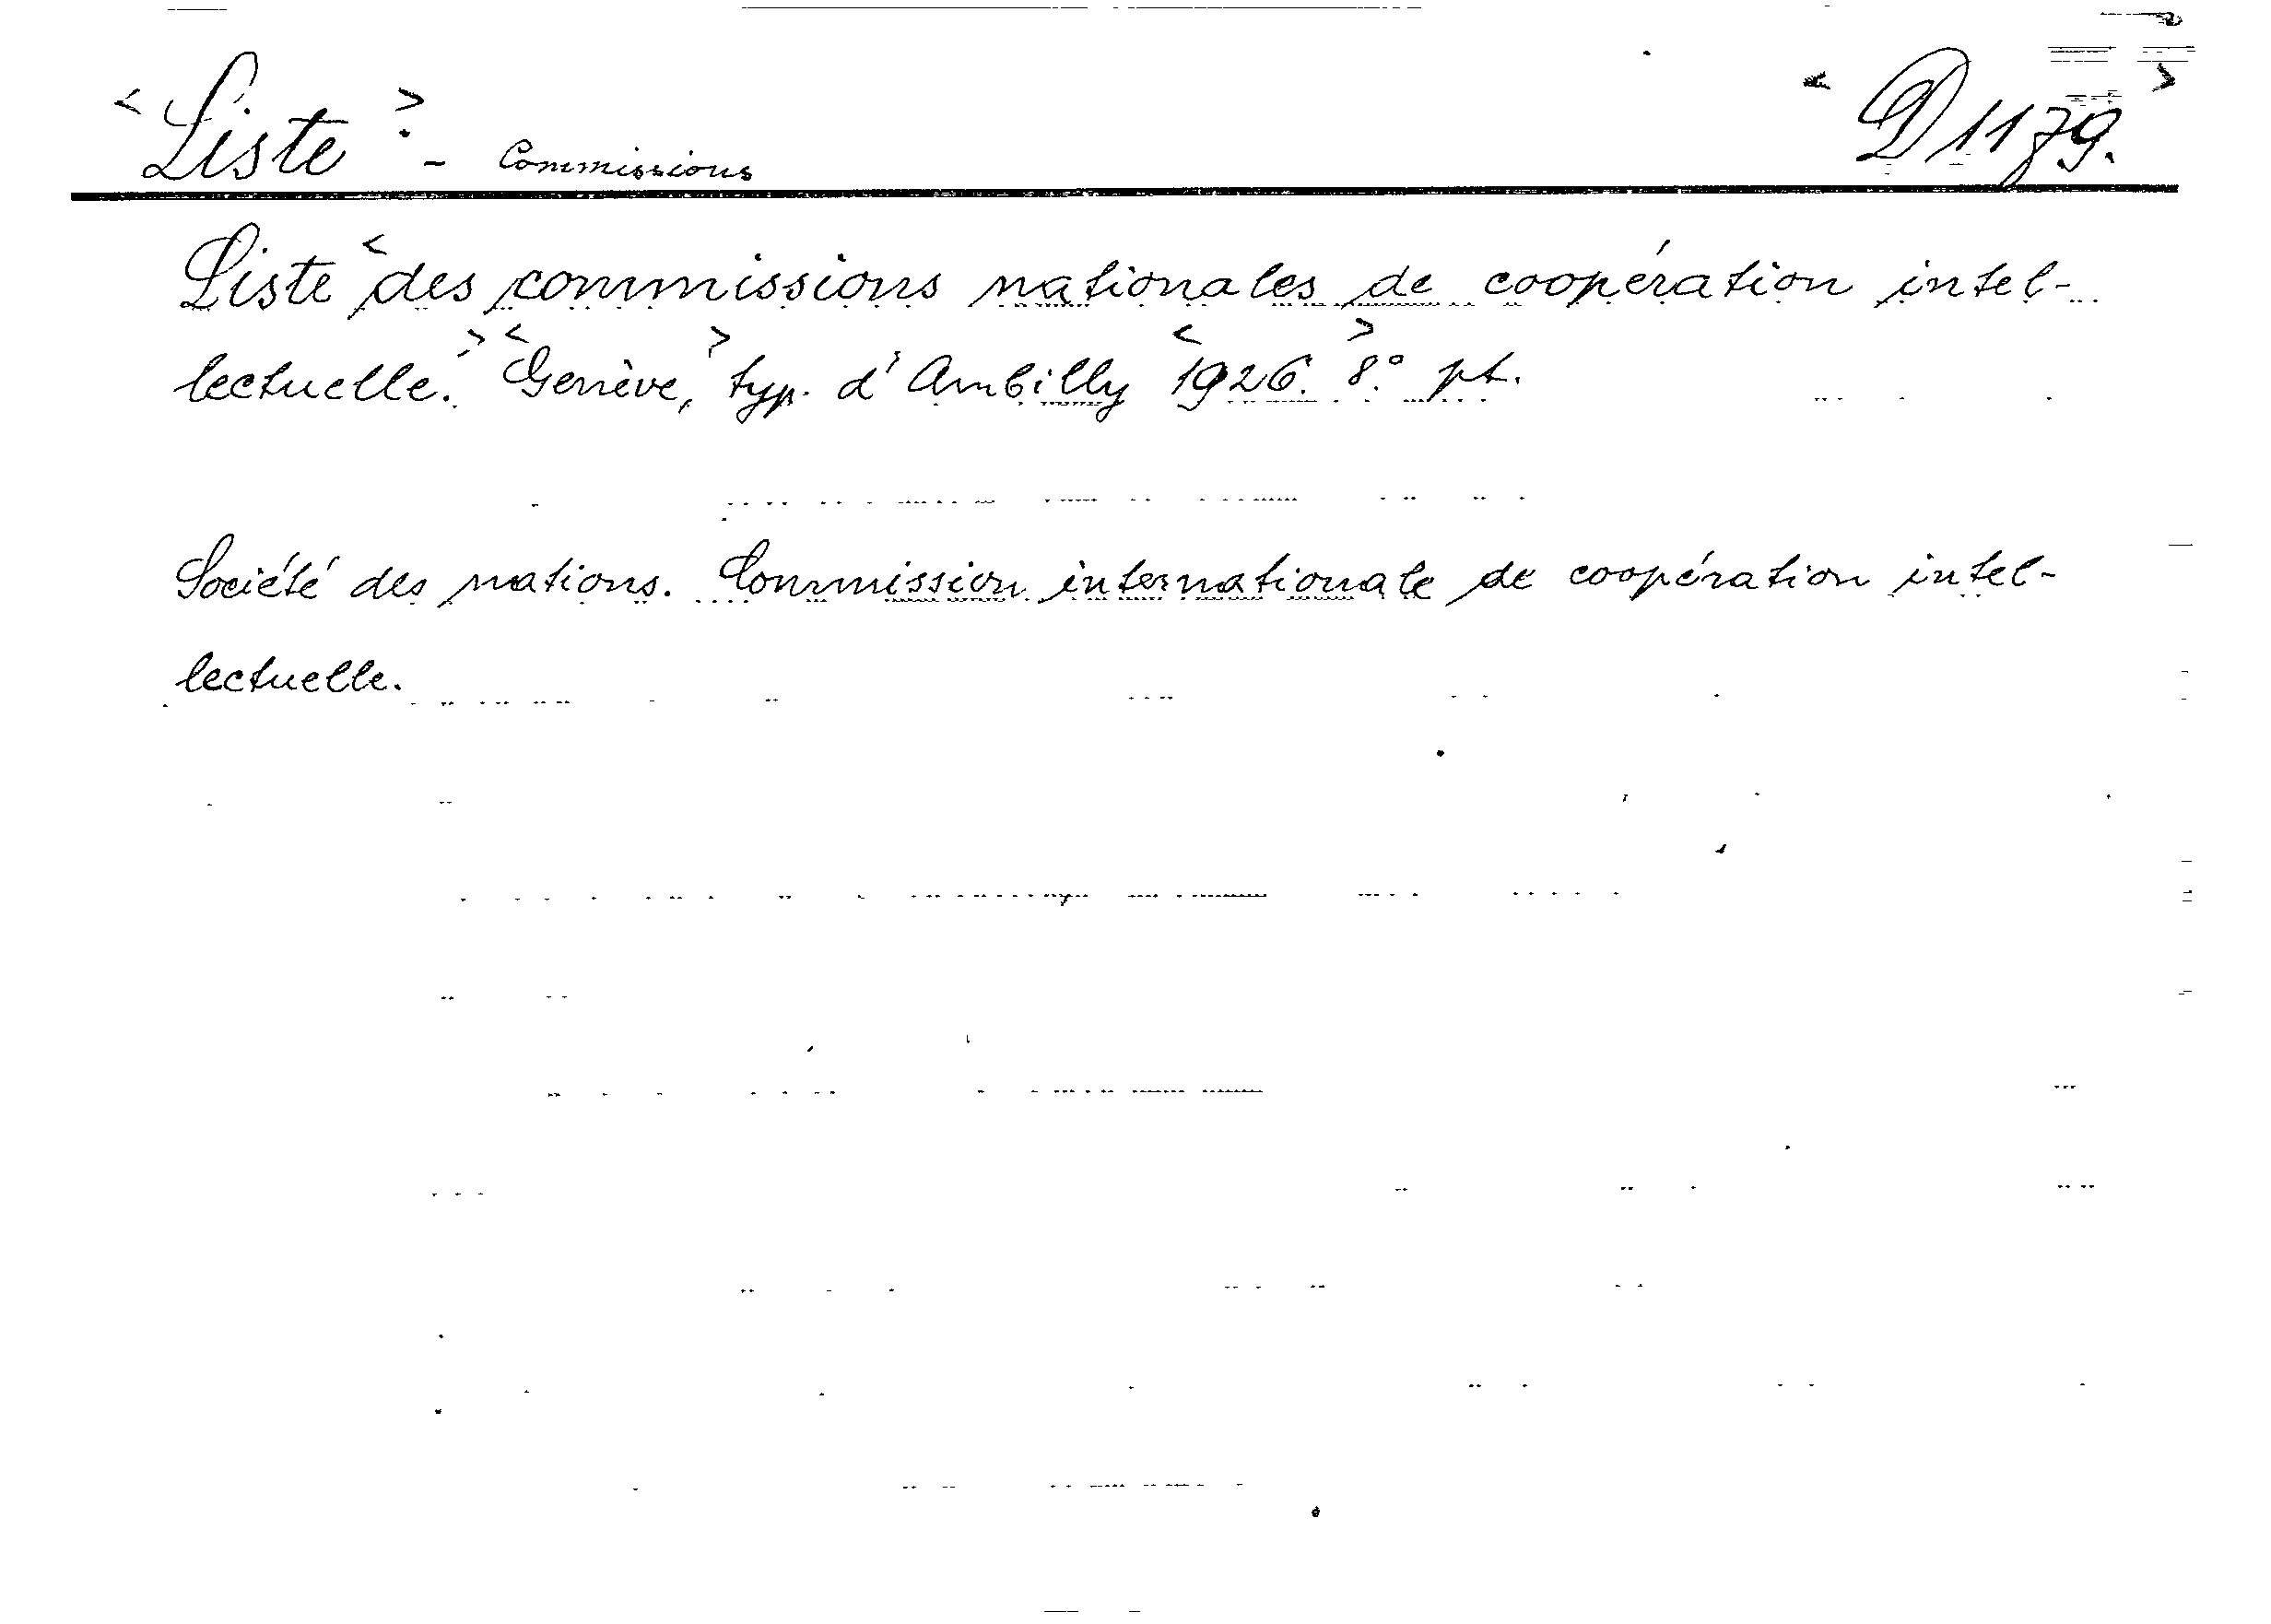 <Liste>. - Commissions <D1179.>
Liste <des commissions nationales de coopération intel-
lectuelle.> <Genève,> typ. d'Ambilly <1926.> 8.° pt.
Société des nations. Commission internationale de coopération intel-
lectuelle.